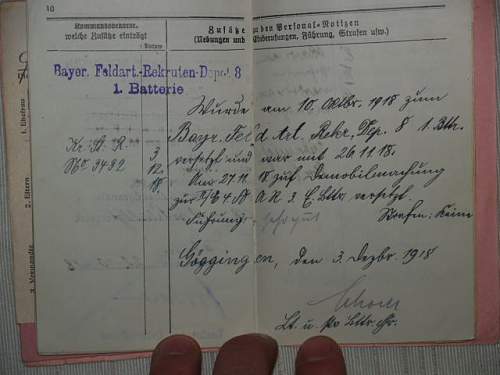 10
Kommandobehörde,
welche Zusätze einträgt
Zusätze zu den Personal-Notizen
(Uebungen und Einberufungen, Führung, Strafen usw.)
Bayer. Feldart.-Rekruten-Depot 8
1. Batterie
Wurde am 10. Oktbr. 1918 zum
Bayr. Feld Art. Rekr. Dep. 8 1. Bttr.
versetzt und war mit 26.11.18.
Am 27.11.18 zuf. Demobilmachung
versetzt.
Führung: Strafen: Keine
Kr. St. R.
No. 3492
3
12.
18.
Göggingen, den 3. Dezbr. 1918
Lt. u. Bttr.
1. Ehefrau
2. Eltern
3. Verwandte